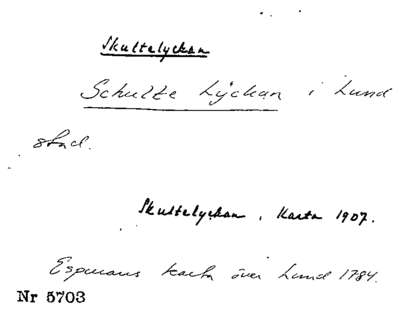 Skultelyckan
Schultz Lÿckan i Lund
stad.
Skultelyckan, Karta 1907.
Espmans karta över Lund 1784.
Nr 5703